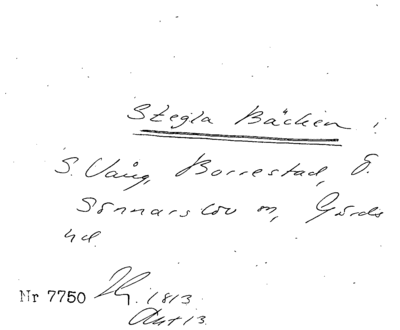 Stegla Bäcken :
S. Vång, Borrestad, Ö.
Sönnarslöv m, Gärds
hd.
Nr 7750 1813
Akt 13